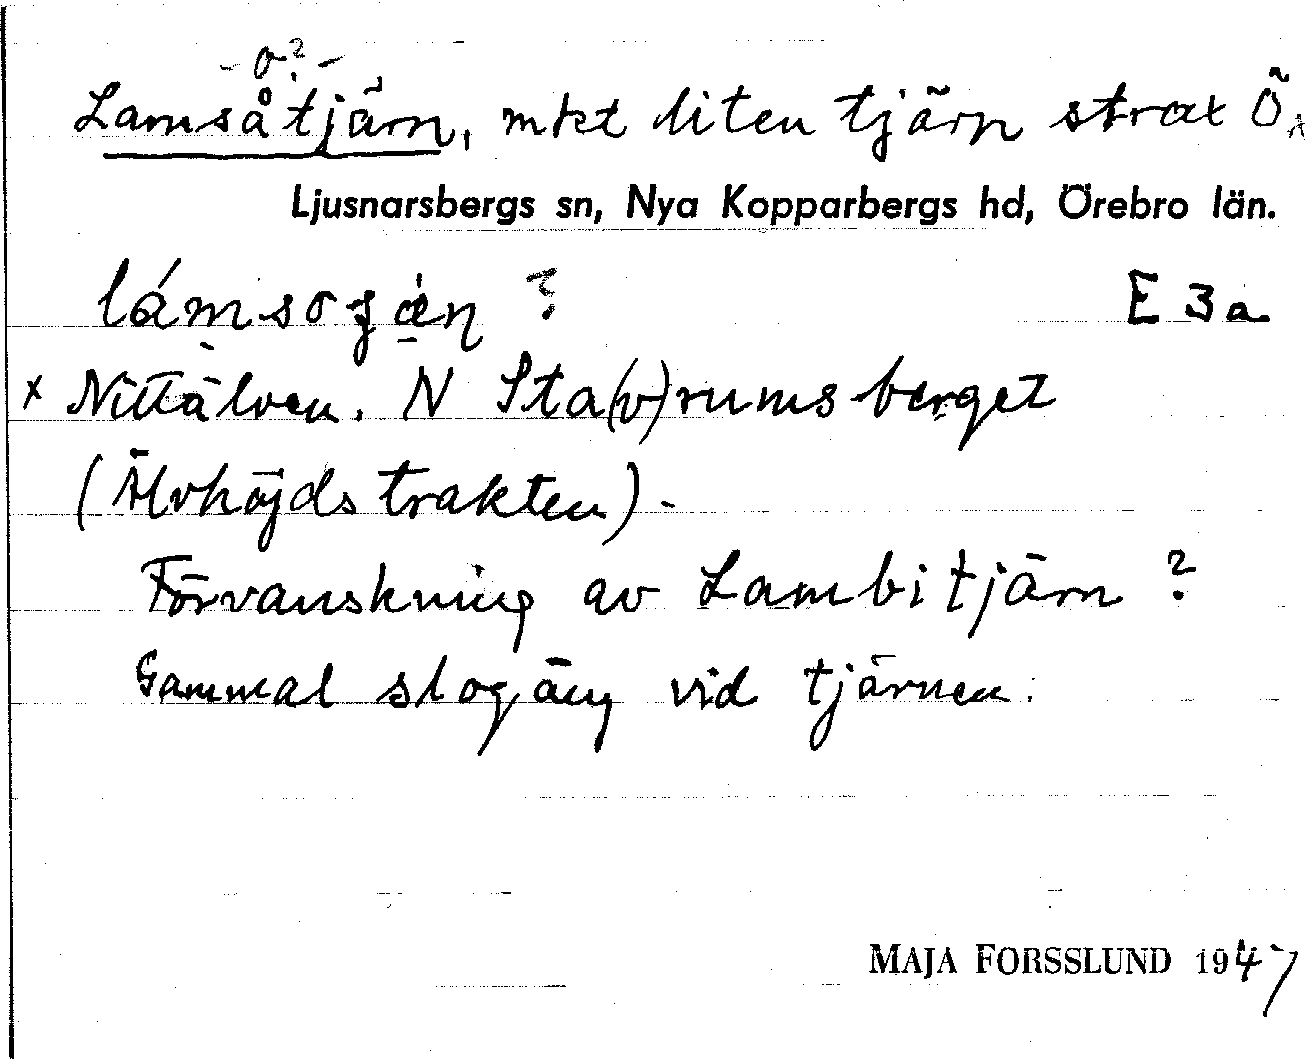 -o?-
Lamsåtjärn, mkt liten tjärn strax Ö x
Ljusnarsbergs sn, Nya Kopparbergs hd, Örebro län.
E 3a
x Nittälven. N Sta(v)rumsberget
(Älvhöjdstrakten).-
Förvanskning av Lambitjärn?
Gammal slogäng vid tjärnen.
MAJA FORSSLUND 1947